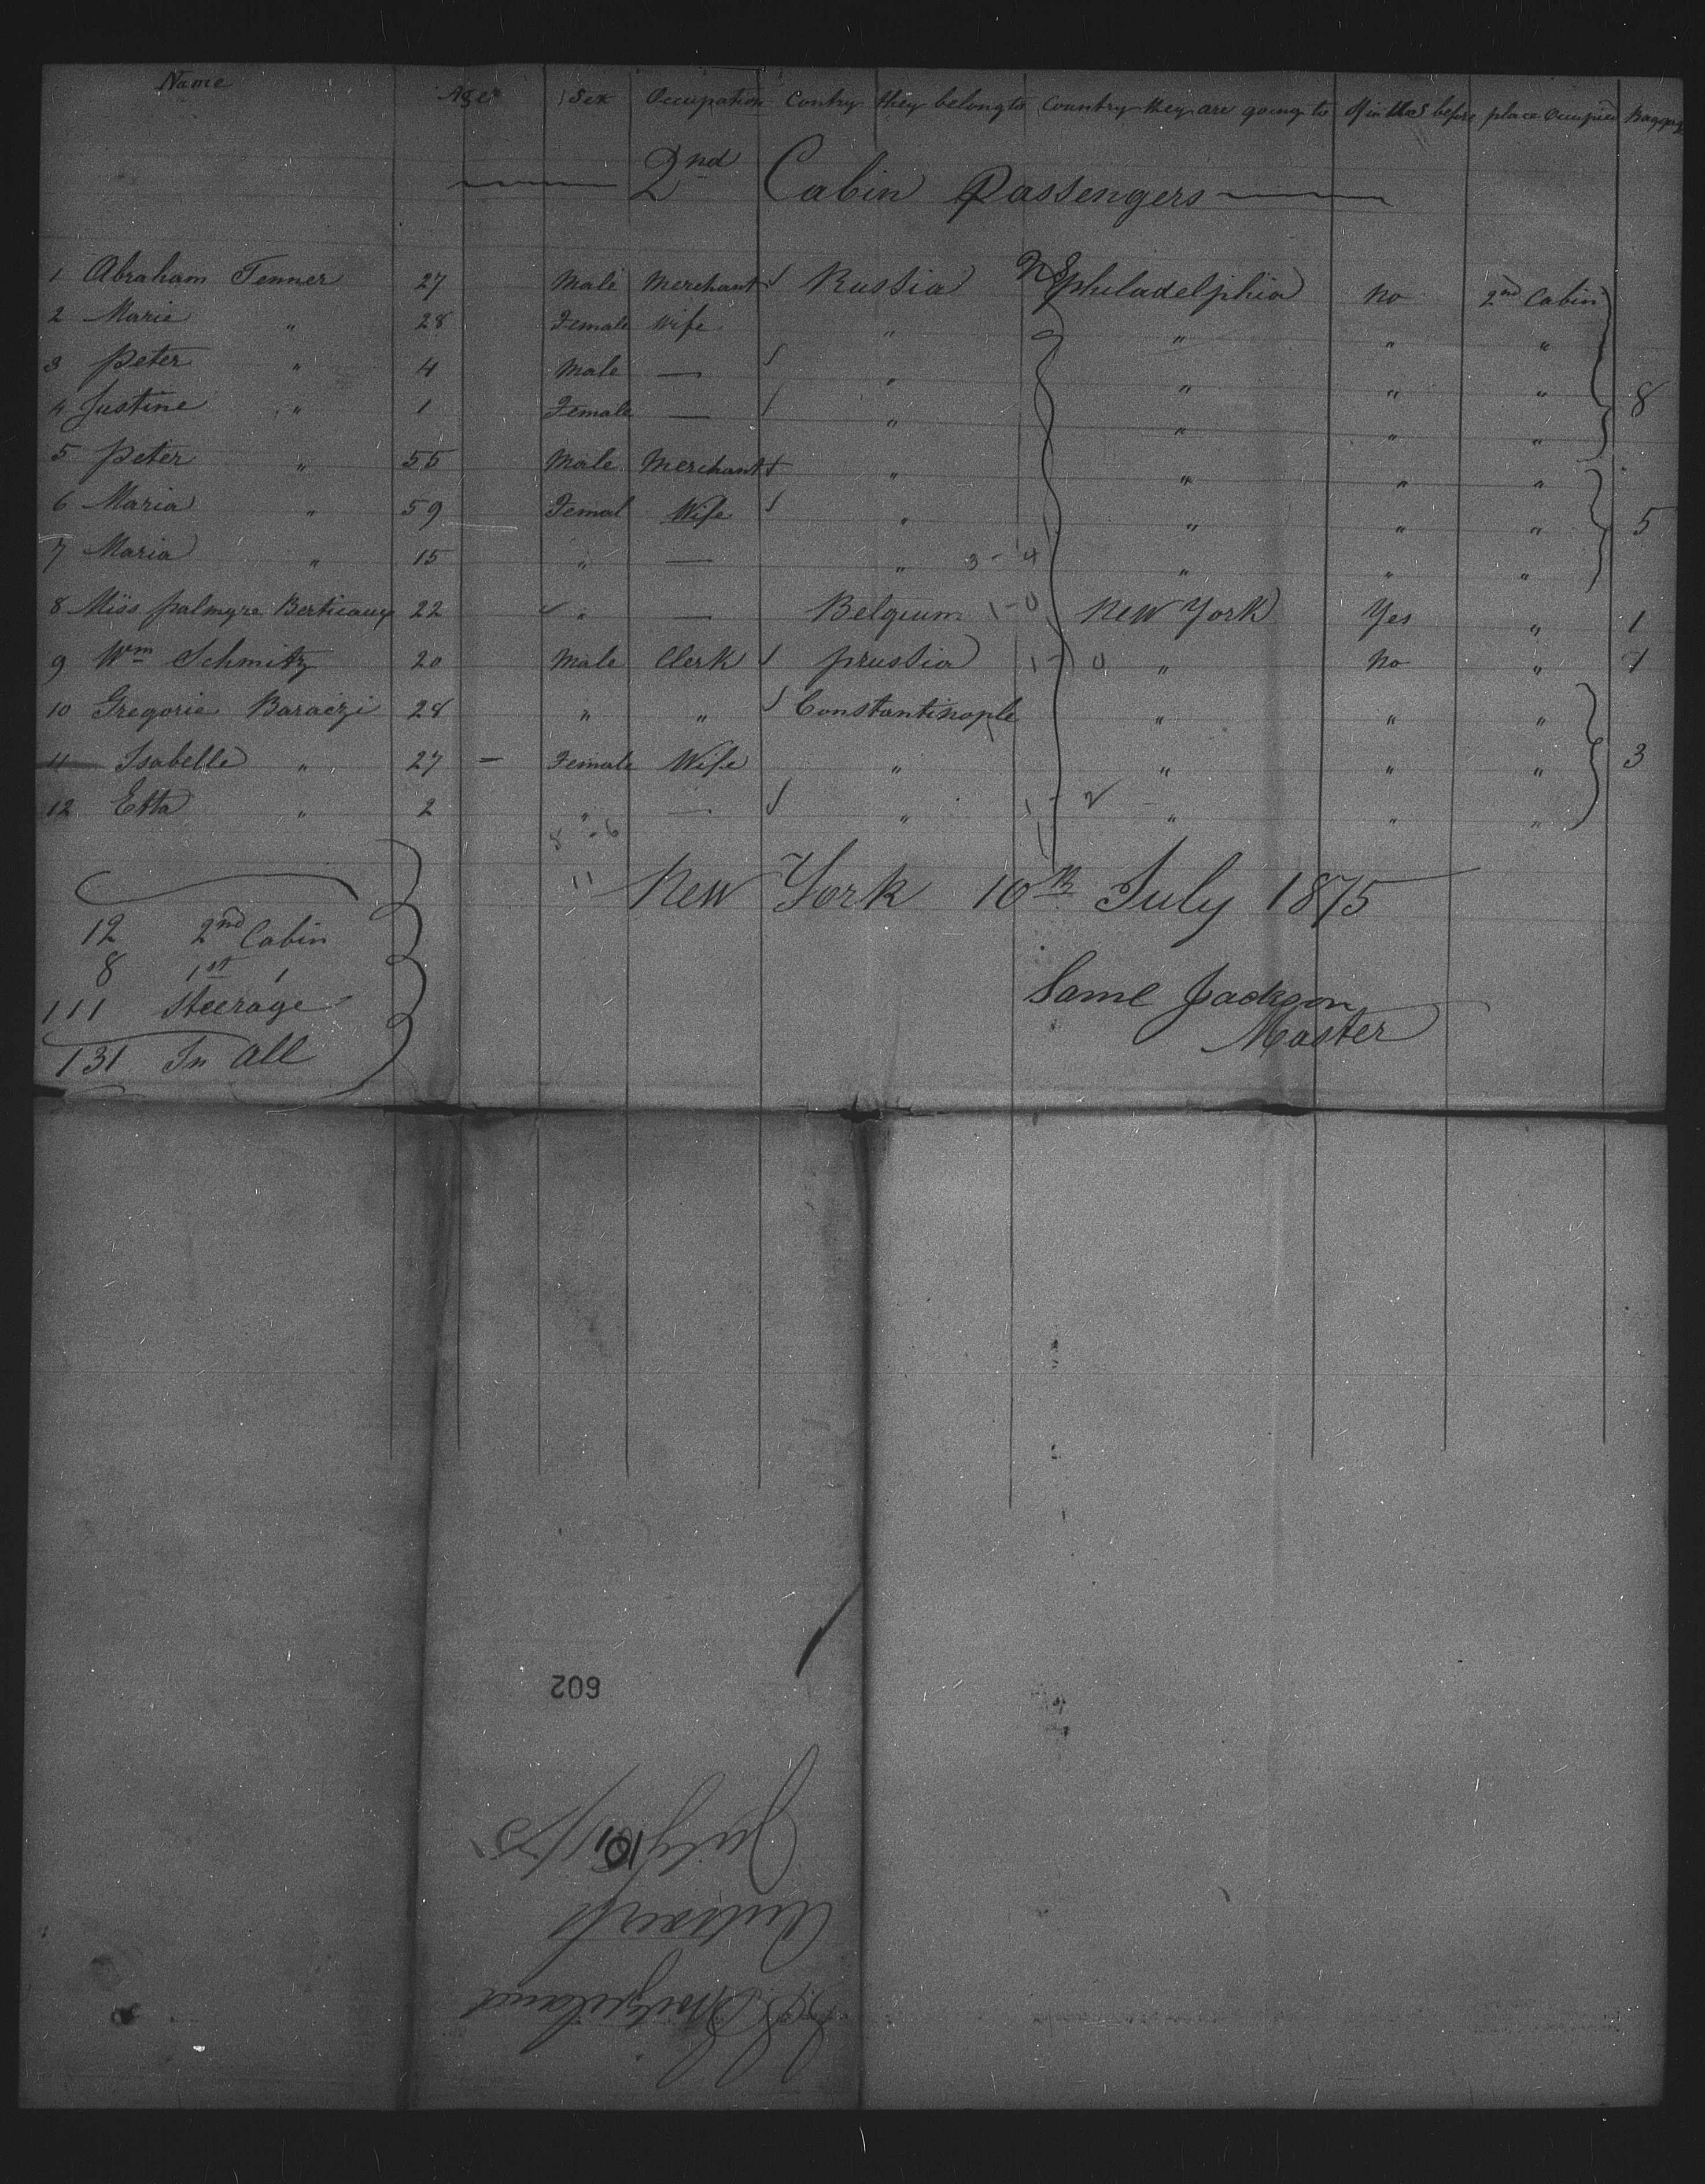 Name Age Sex Occupation Contry they belong to Country they are going to If in U.S before place Occupied Baggage
2nd Cabin Passengers
1 Abraham Tenner 27 Male Merchant Russia Philadelphia No 2nd Cabin
2 Marie " 28 Female Wife " " " "
3 Peter " 4 Male — " " " "
4 Justine " 1 Female — " " " " 8
5 Peter " 55 Male Merchant " " " "
6 Maria " 59 Femal Wife " " " " 5
7 Maria " 15 " — " 3 - 4 " " "
8 Miss Palmyre Berticaux 22 " — Belgium 1-0 New York Yes " 1
9 Wm Schmitz 20 Male Clerk Prussia 1-0 " No " 1
10 Gregorie Baraczi 28 " " Constantinople " " "
11 Isabelle " 27 — Female Wife " " " " 3
12 Etta " 2 " — " 1 - 2 " " "
5-6
11 New York 10th July 1875
12 2nd Cabin
8 1st "
111 Steerage
131 In All
Saml Jackson
Master
602
SS Switzerland
Antwerp
July 10/75